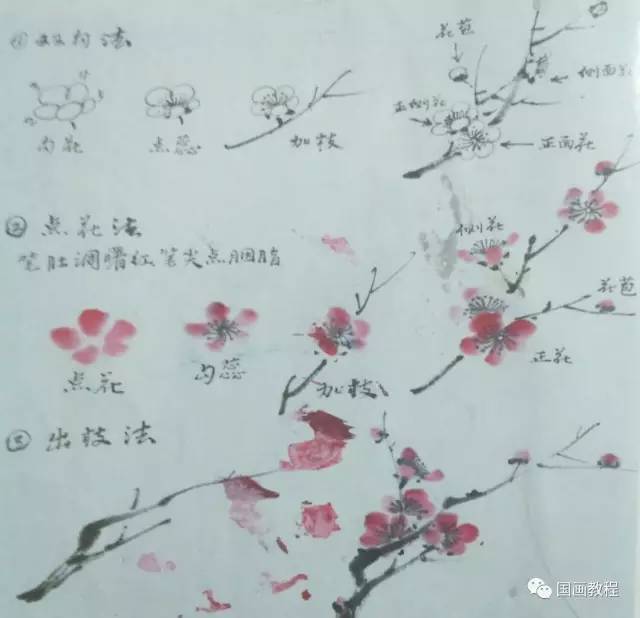 ① 双勾法
勾花
点蕊
加枝
花苞
侧面花
正侧花
正面花
② 点花法
笔肚调曙红笔尖点胭脂
点花
勾蕊
加枝
侧花
花苞
正花
③ 出枝法
国画教程